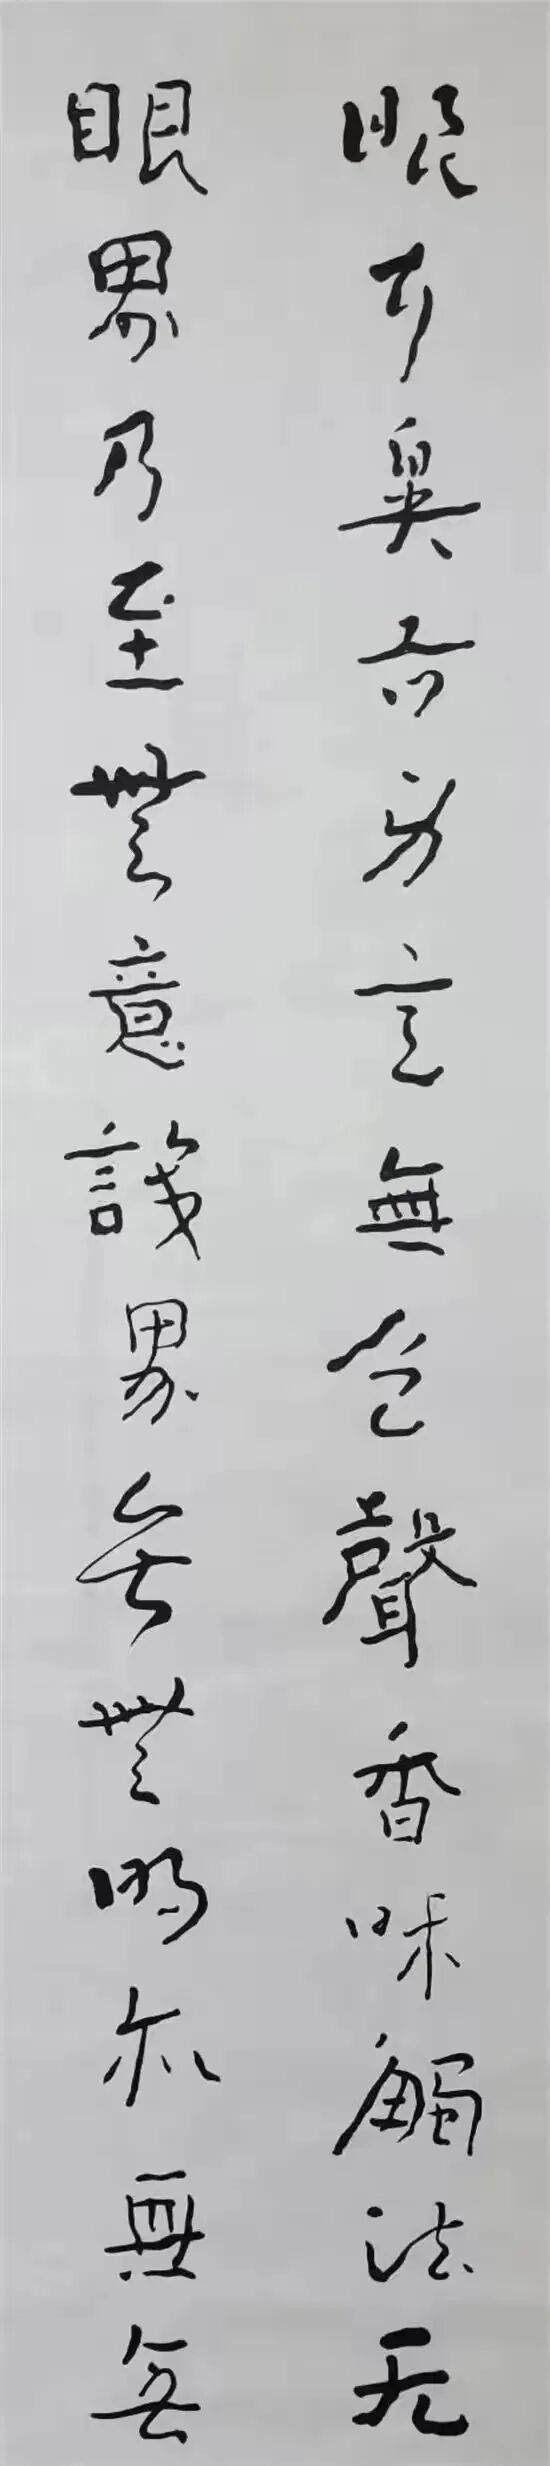 眼耳鼻舌身意無色聲香味觸法无
眼界乃至無意識界無無明亦無無